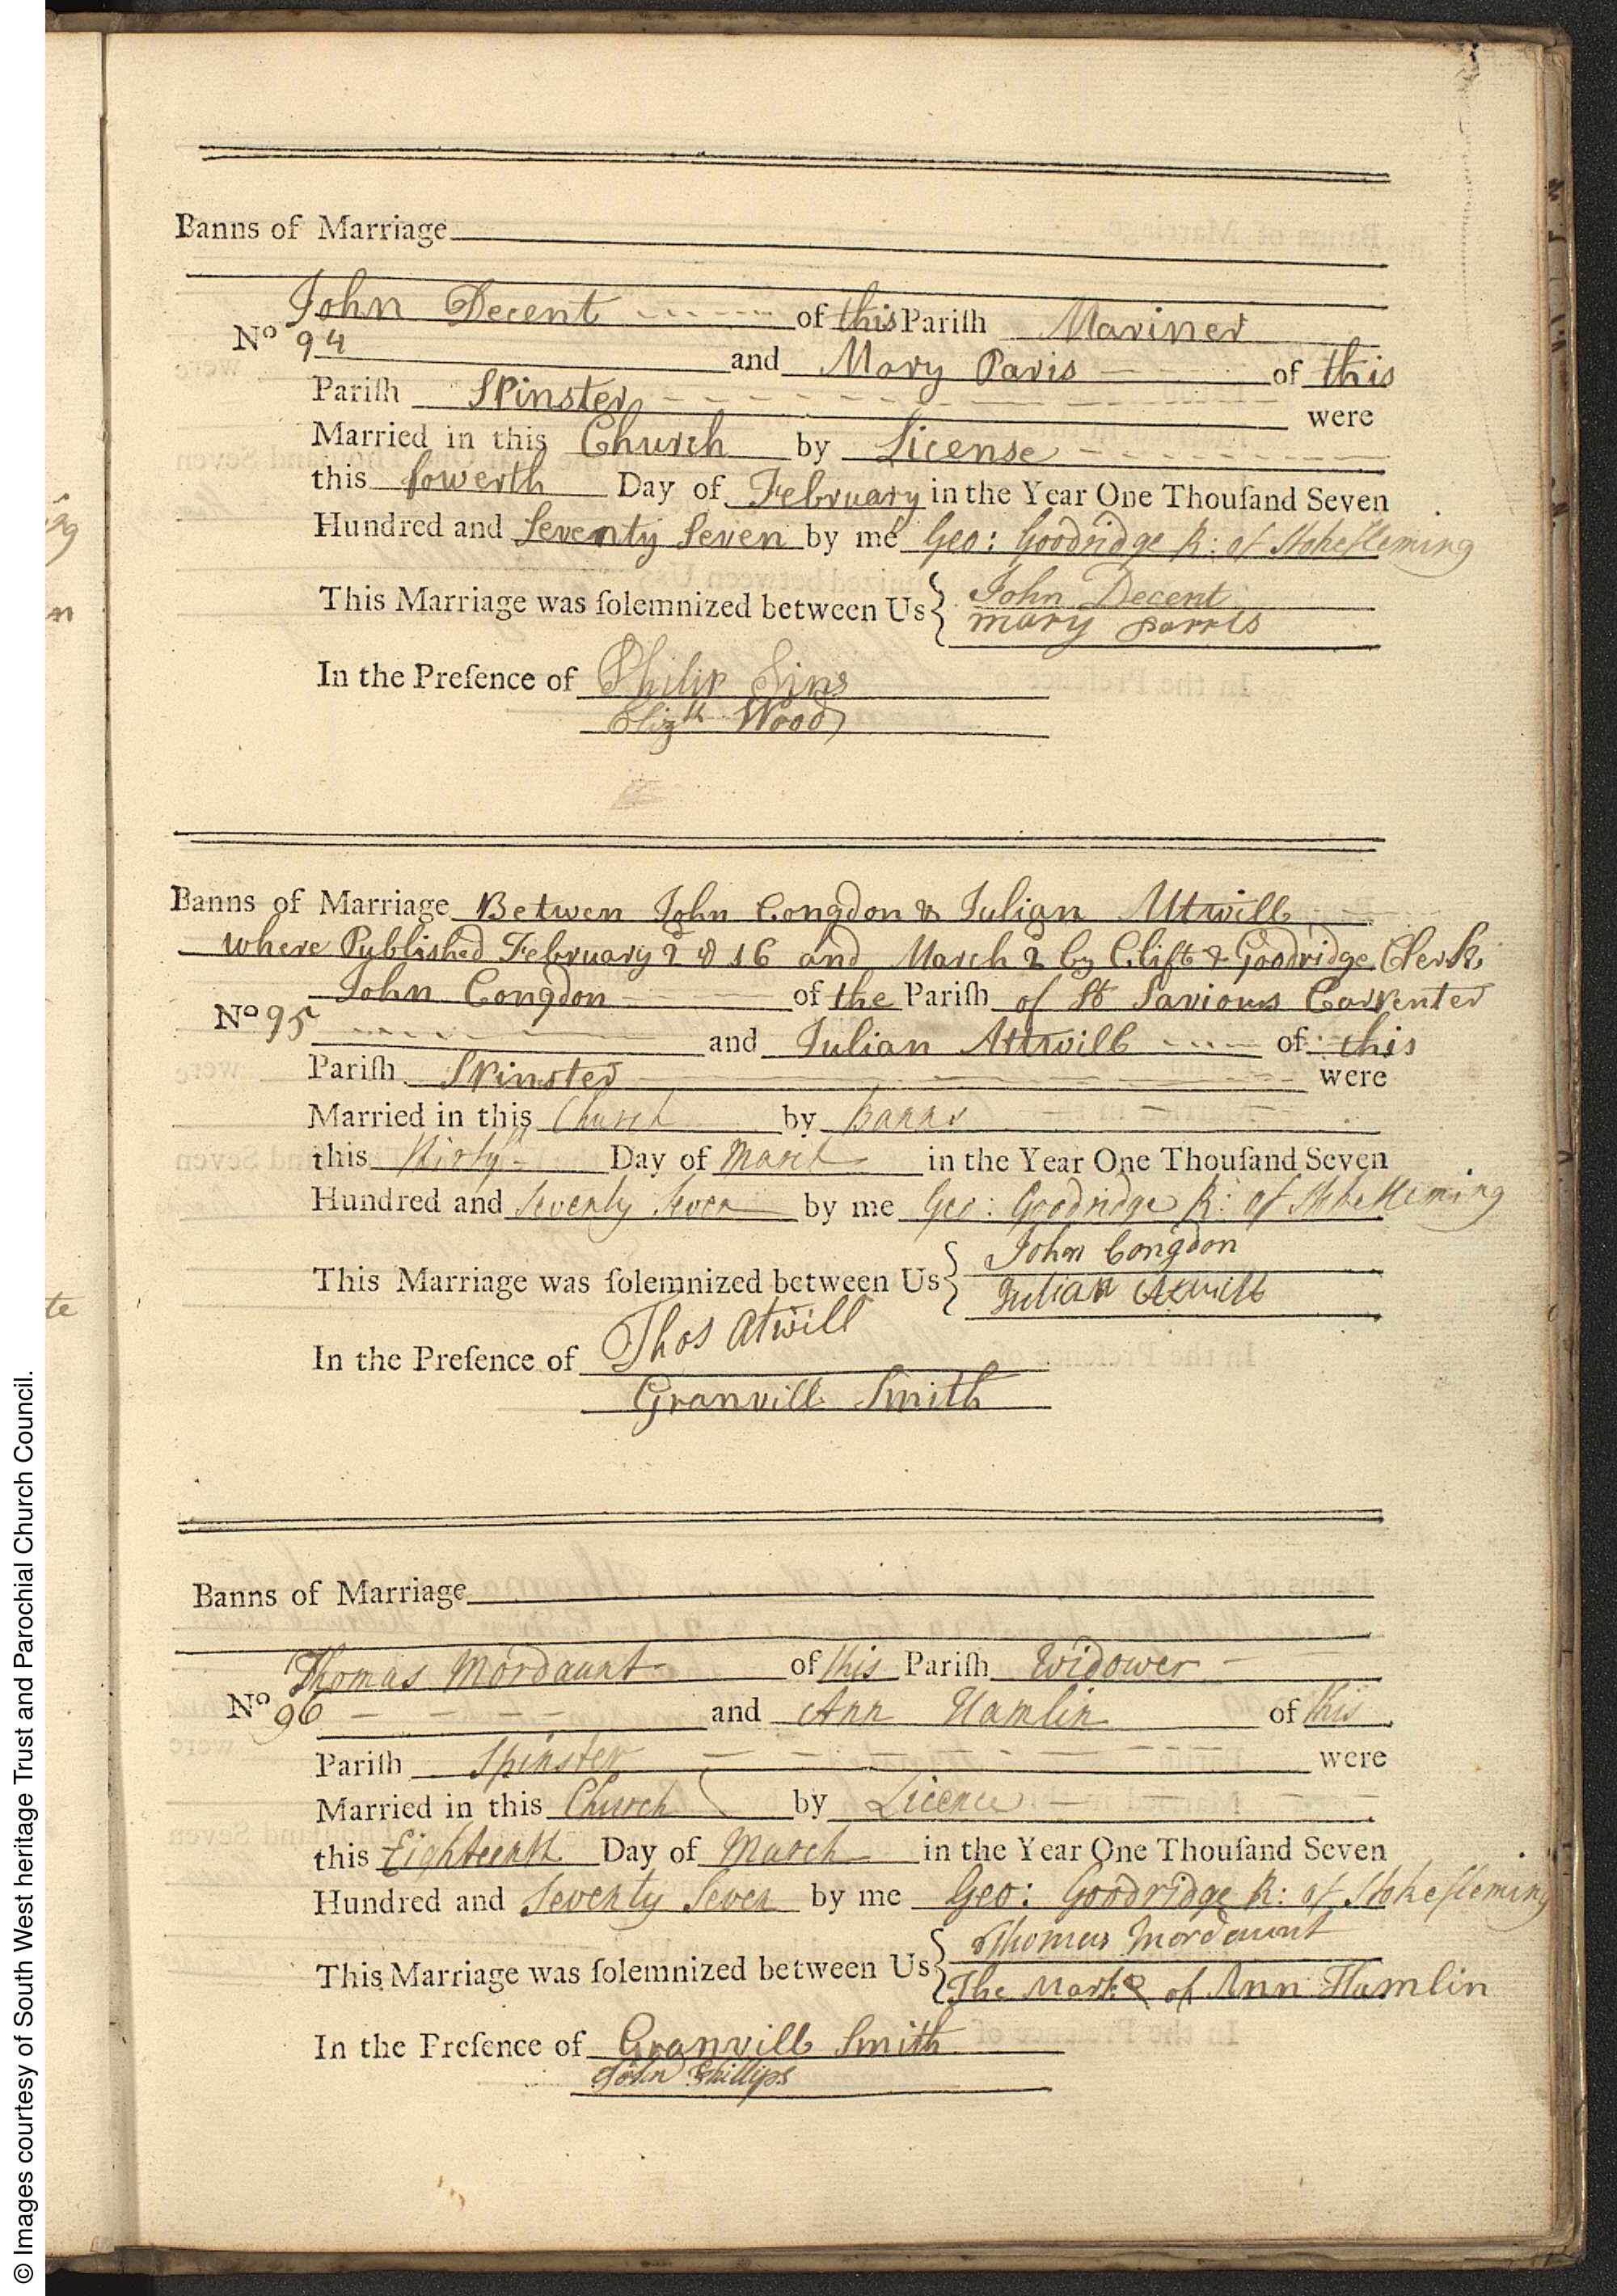 Banns of Marriage
John Decent of this Pariſh Mariner
No 94 and Mary Paris of this
Pariſh Spinster were
Married in this Church by License
this fowerth Day of February in the Year One Thouſand Seven
Hundred and Seventy Seven by me Geo: Goodridge R: of Stokefleming
This Marriage was ſolemnized between Us { John Decent
mary parris
In the Preſence of Philip Sins
Elizth Wood
Banns of Marriage Betwen John Congdon & Julian Attwill
where Published February 2 & 16 and March 2 by Clift & Goodridge Clerk
John Congdon of the Pariſh of St Saviours Carpenter
No 95 and Julian Attwill of this
Pariſh Spinster were
Married in this Church by Banns
this thirty Day of March in the Year One Thouſand Seven
Hundred and Seventy Seven by me Geo: Goodridge R: of Stokefleming
This Marriage was ſolemnized between Us { John Congdon
Julian Atwill
In the Preſence of Thos Atwill
Granvill Smith
Banns of Marriage
Thomas Mordaunt of this Pariſh Widower
No 96 and Ann Hamlin of this
Pariſh Spinster were
Married in this Church by Licence
this Eighteenth Day of March in the Year One Thouſand Seven
Hundred and Seventy Seven by me Geo: Goodridge R: of Stokefleming
This Marriage was ſolemnized between Us { Thomas Mordaunt
The Mark of Ann Hamlin
In the Preſence of Granvill Smith
John Phillips
© Images courtesy of South West heritage Trust and Parochial Church Council.